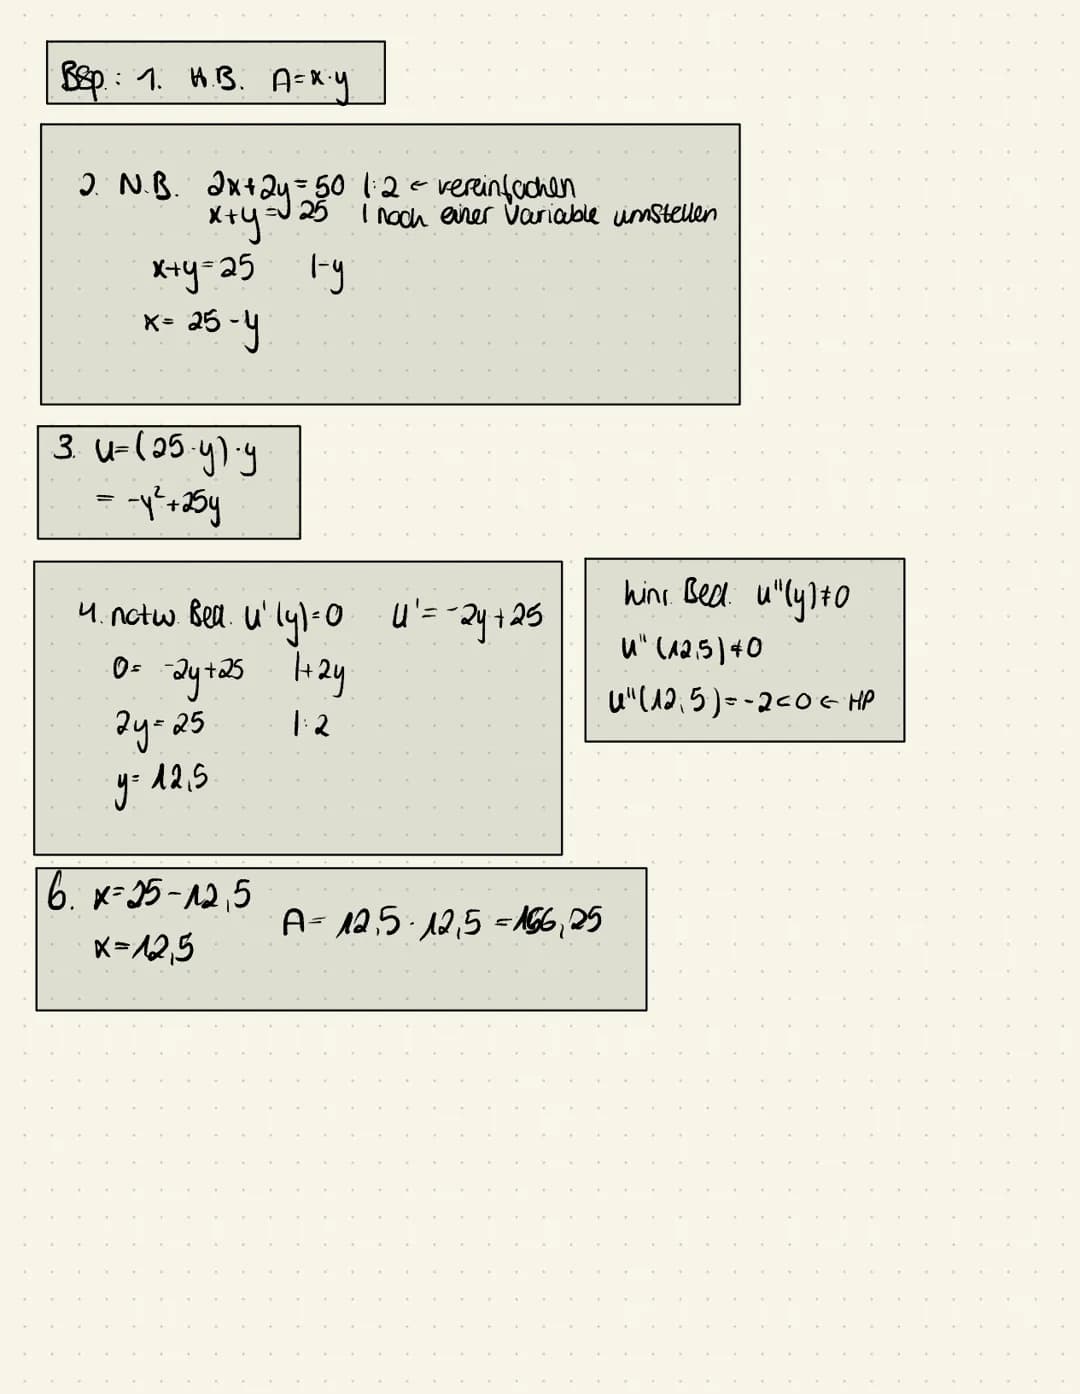 Bsp.: 1. H.B. A=x·y
2. N.B. 2x+2y=50 |:2 ← vereinfachen
x+y=25 | nach einer Variable umstellen
x+y=25 |-y
x= 25-y
3. U=(25-y)·y
= -y²+25y
4. notw. Bed. u'(y)=0 u'=-2y+25
0= -2y+25 |+2y
2y=25 |:2
y= 12,5
hinr. Bed. u"(y)≠0
u"(12,5)≠0
u"(12,5)=-2<0 ← HP
6. x=25-12,5
x=12,5
A= 12,5·12,5 =156,25